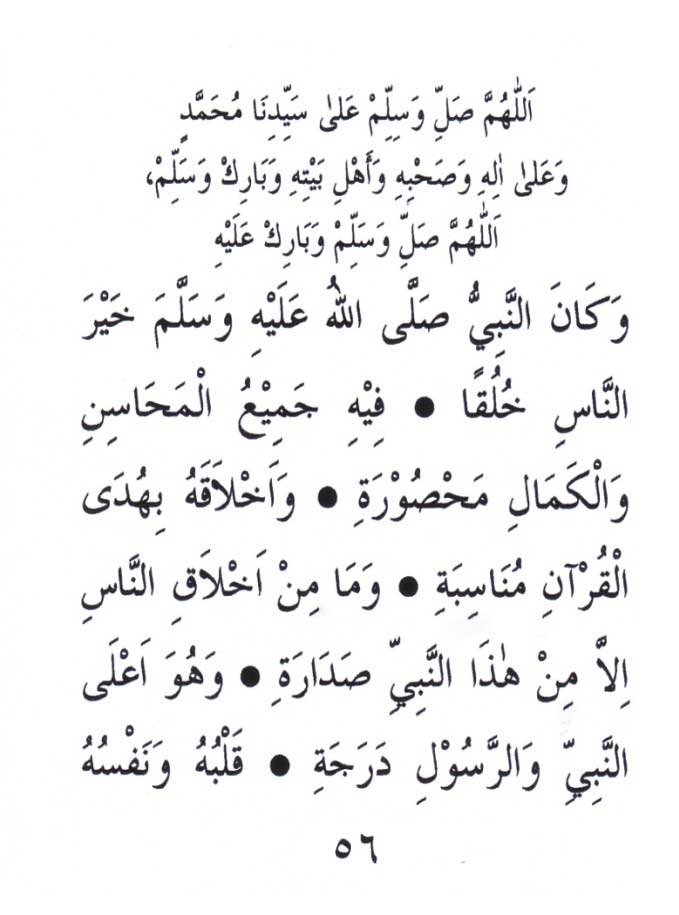 اَللّٰهُمَّ صَلِّ وَسِلِّمْ عَلىٰ سَيِّدِنَا مُحَمَّدٍ
وَعَلىٰ اٰلِهِ وَصَحْبِهِ وَأَهْلِ بَيْتِهِ وَبَارِكْ وَسَلِّمْ،
اَللّٰهُمَّ صَلِّ وَسَلِّمْ وَبَارِكْ عَلَيْهِ
وَكَانَ النَّبِيُّ صَلَّى اللهُ عَلَيْهِ وَسَلَّمَ خَيْرَ
النَّاسِ خُلُقًا ● فِيْهِ جَمِيْعُ الْمَحَاسِنِ
وَالْكَمَالِ مَحْصُوْرَةِ ● وَاَخْلَاَقَهُ بِهُدَى
الْقُرْآنِ مُنَاسِبَةِ ● وَمَا مِنْ اَخْلَاَقِ النَّاسِ
اِلاَّ مِنْ هٰذَا النَّبِيِّ صَدَارَةِ ● وَهُوَ اَعْلَى
النَّبِيِّ وَالرَّسُوْلِ دَرَجَةِ ● قَلْبُهُ وَنَفْسُهُ
٥٦